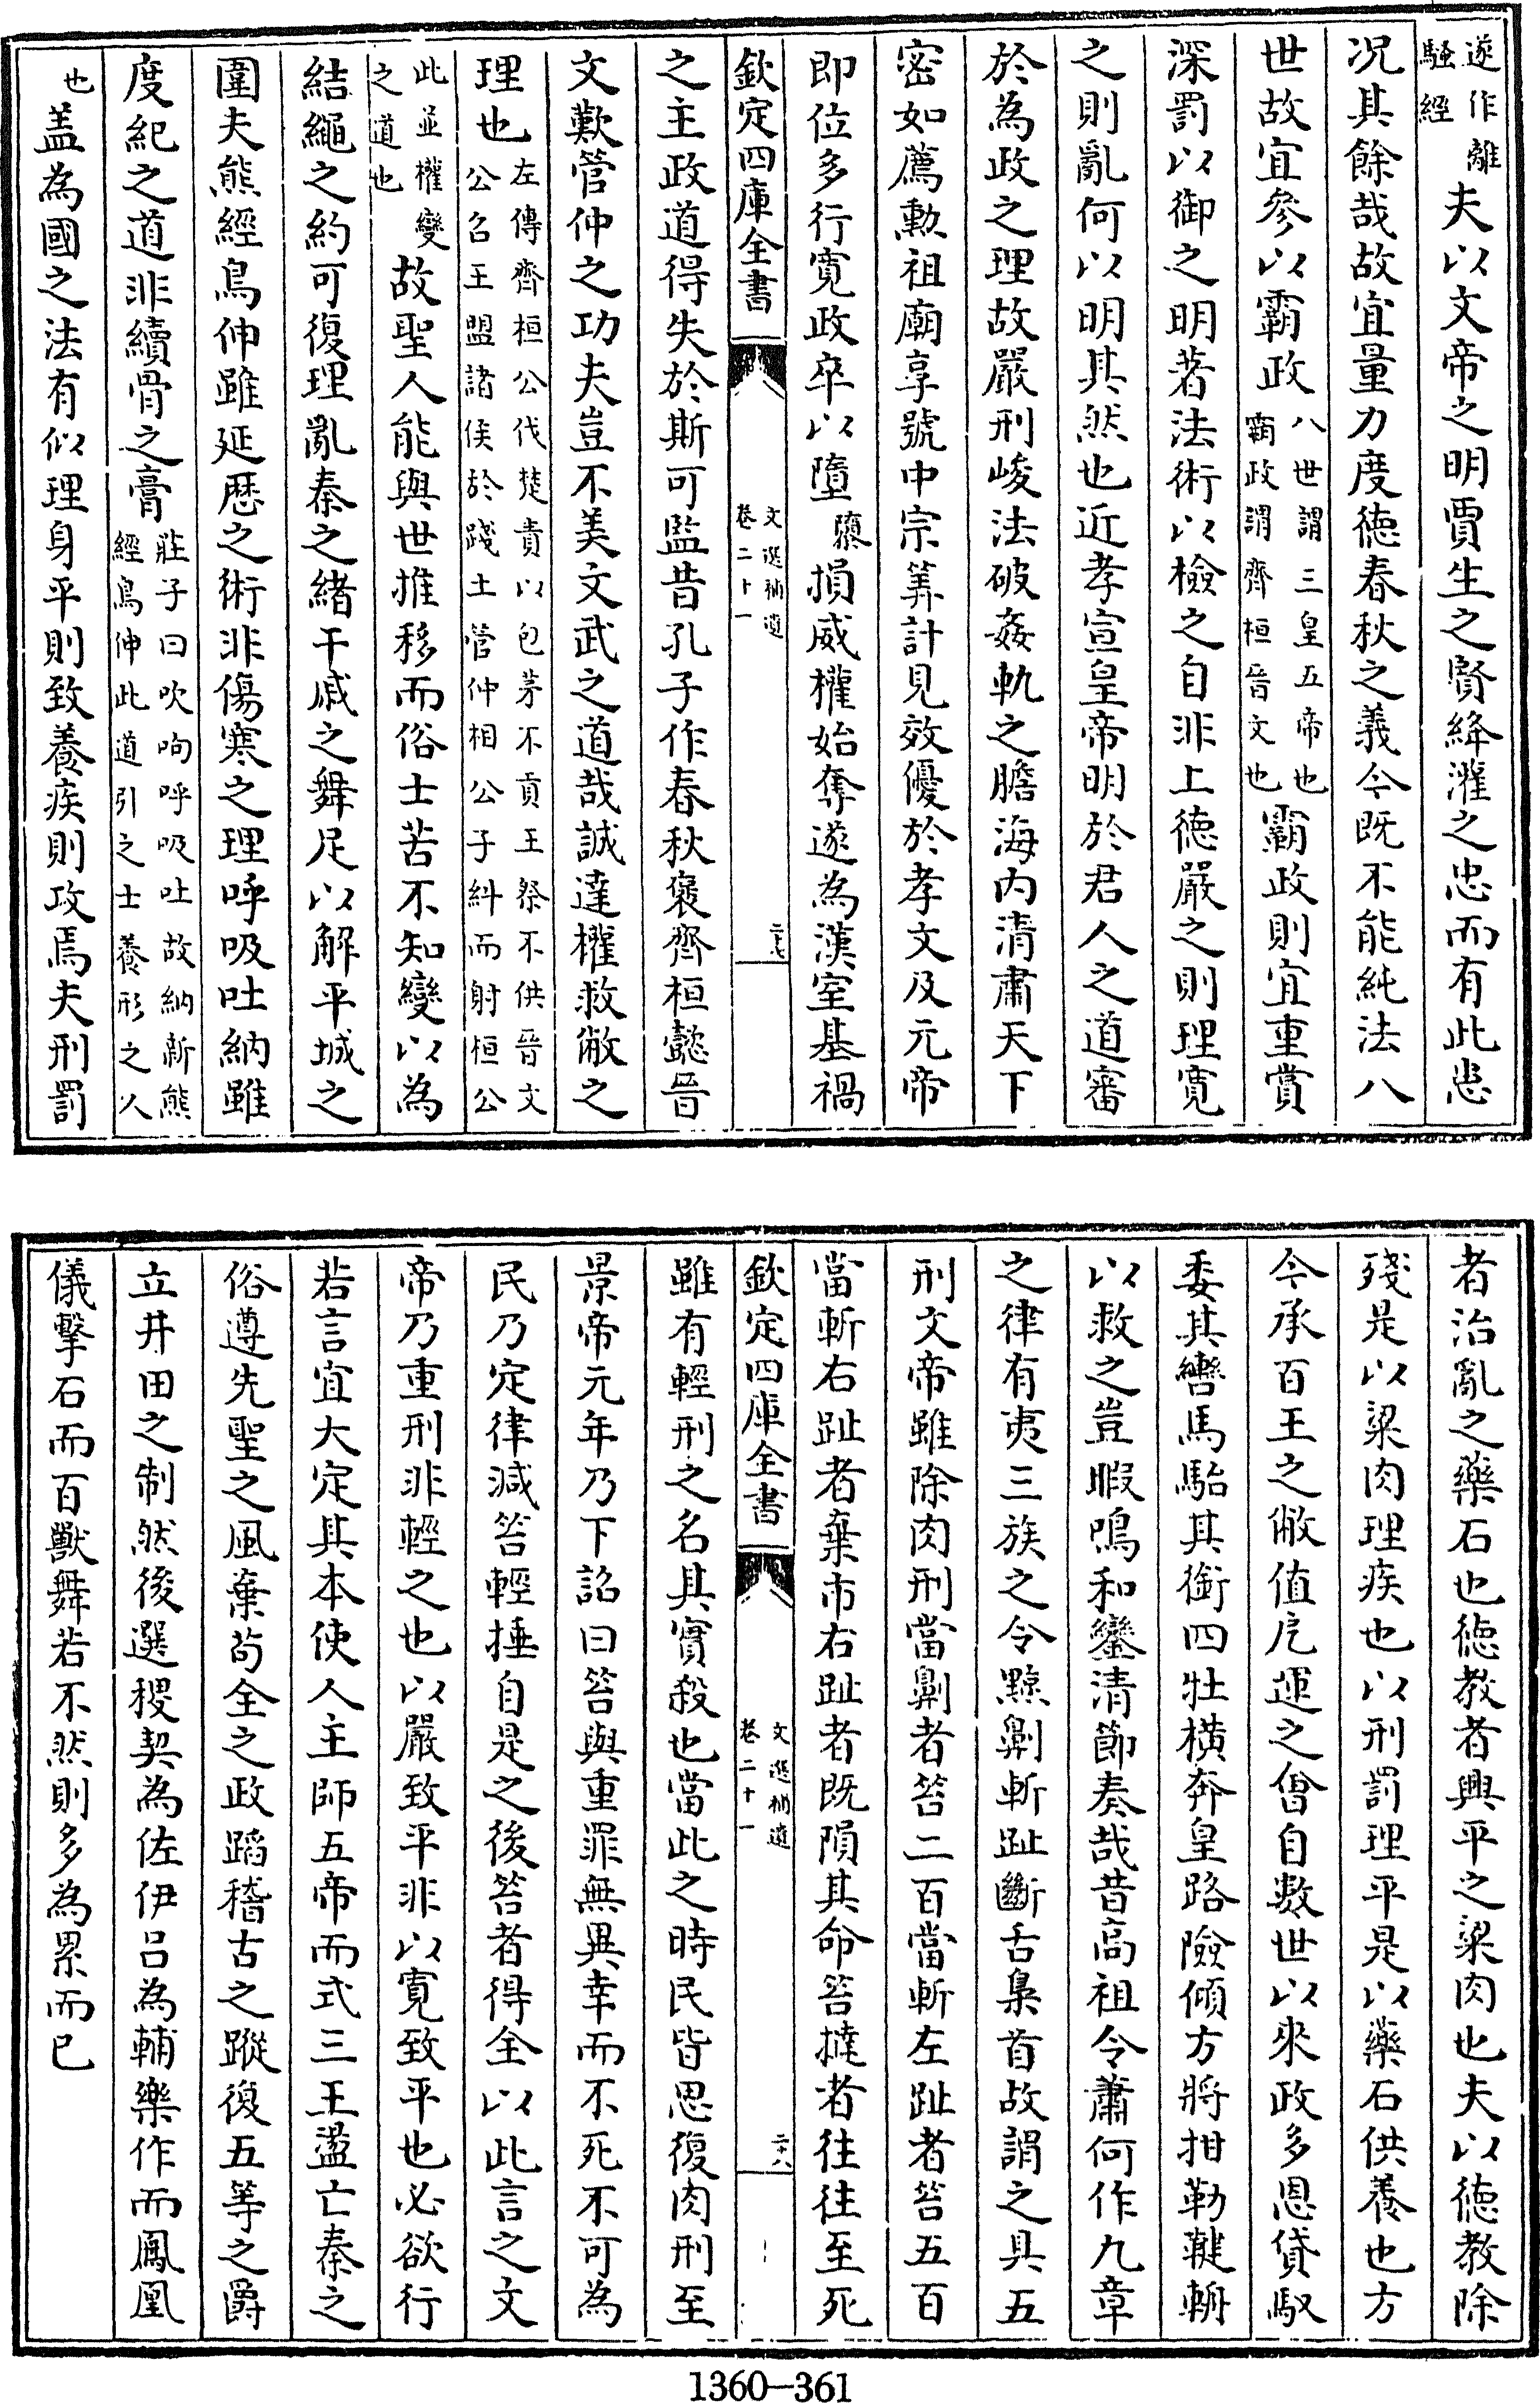 遂作離騷經夫以文帝之明賈生之賢絳灌之忠而有此患
况其餘哉故宜量力度德春秋之義今既不能純法八
世故宜參以霸政八世謂三皇五帝也霸政謂齊桓晉文也霸政則宜重賞
深罰以御之明著法術以檢之自非上德嚴之則理寛
之則亂何以明其然也近孝宣皇帝明於君人之道審
於為政之理故嚴刑峻法破姦軌之膽海内清肅天下
密如薦勲祖廟享號中宗筭計見效優於孝文及元帝
即位多行寛政卒以墮隳損威權始奪遂為漢室基禍
欽定四庫全書
文選補遺
卷二十一
二十七
之主政道得失於斯可監昔孔子作春秋褒齊桓懿晉
文歎管仲之功夫豈不美文武之道哉誠達權救敝之
理也左傳齊桓公伐楚責以包茅不貢王祭不供晉文公召王盟諸侯於踐土管仲相公子糾而射桓公
此並權變之道也故聖人能與世推移而俗士苦不知變以為
結繩之約可復理亂秦之緒干戚之舞足以解平城之
圍夫熊經鳥伸雖延厯之術非傷寒之理呼吸吐納雖
度紀之道非續骨之膏莊子曰吹呴呼吸吐故納新熊經鳥伸此道引之士養形之人
也盖為國之法有似理身平則致養疾則攻焉夫刑罰
者治亂之藥石也德教者興平之粱肉也夫以德教除
殘是以粱肉理疾也以刑罰理平是以藥石供養也方
今承百王之敝值戹運之會自數世以來政多恩貸馭
委其轡馬駘其銜四牡横奔皇路險傾方將拑勒鞬輈
以救之豈暇鳴和鑾清節奏哉昔高祖令蕭何作九章
之律有夷三族之令黥劓斬趾斷舌梟首故謂之具五
刑文帝雖除肉刑當劓者笞二百當斬左趾者笞五百
當斬右趾者棄市右趾者既隕其命笞撻者往往至死
欽定四庫全書
文選補遺
卷二十一
二十八
雖有輕刑之名其實殺也當此之時民皆思復肉刑至
景帝元年乃下詔曰笞與重罪無異幸而不死不可為
民乃定律減笞輕捶自是之後笞者得全以此言之文
帝乃重刑非輕之也以嚴致平非以寛致平也必欲行
若言宜大定其本使人主師五帝而式三王盪亡秦之
俗遵先聖之風棄苟全之政蹈稽古之蹤復五等之爵
立井田之制然後選稷契為佐伊吕為輔樂作而鳳凰
儀擊石而百獸舞若不然則多為累而已
1360-361